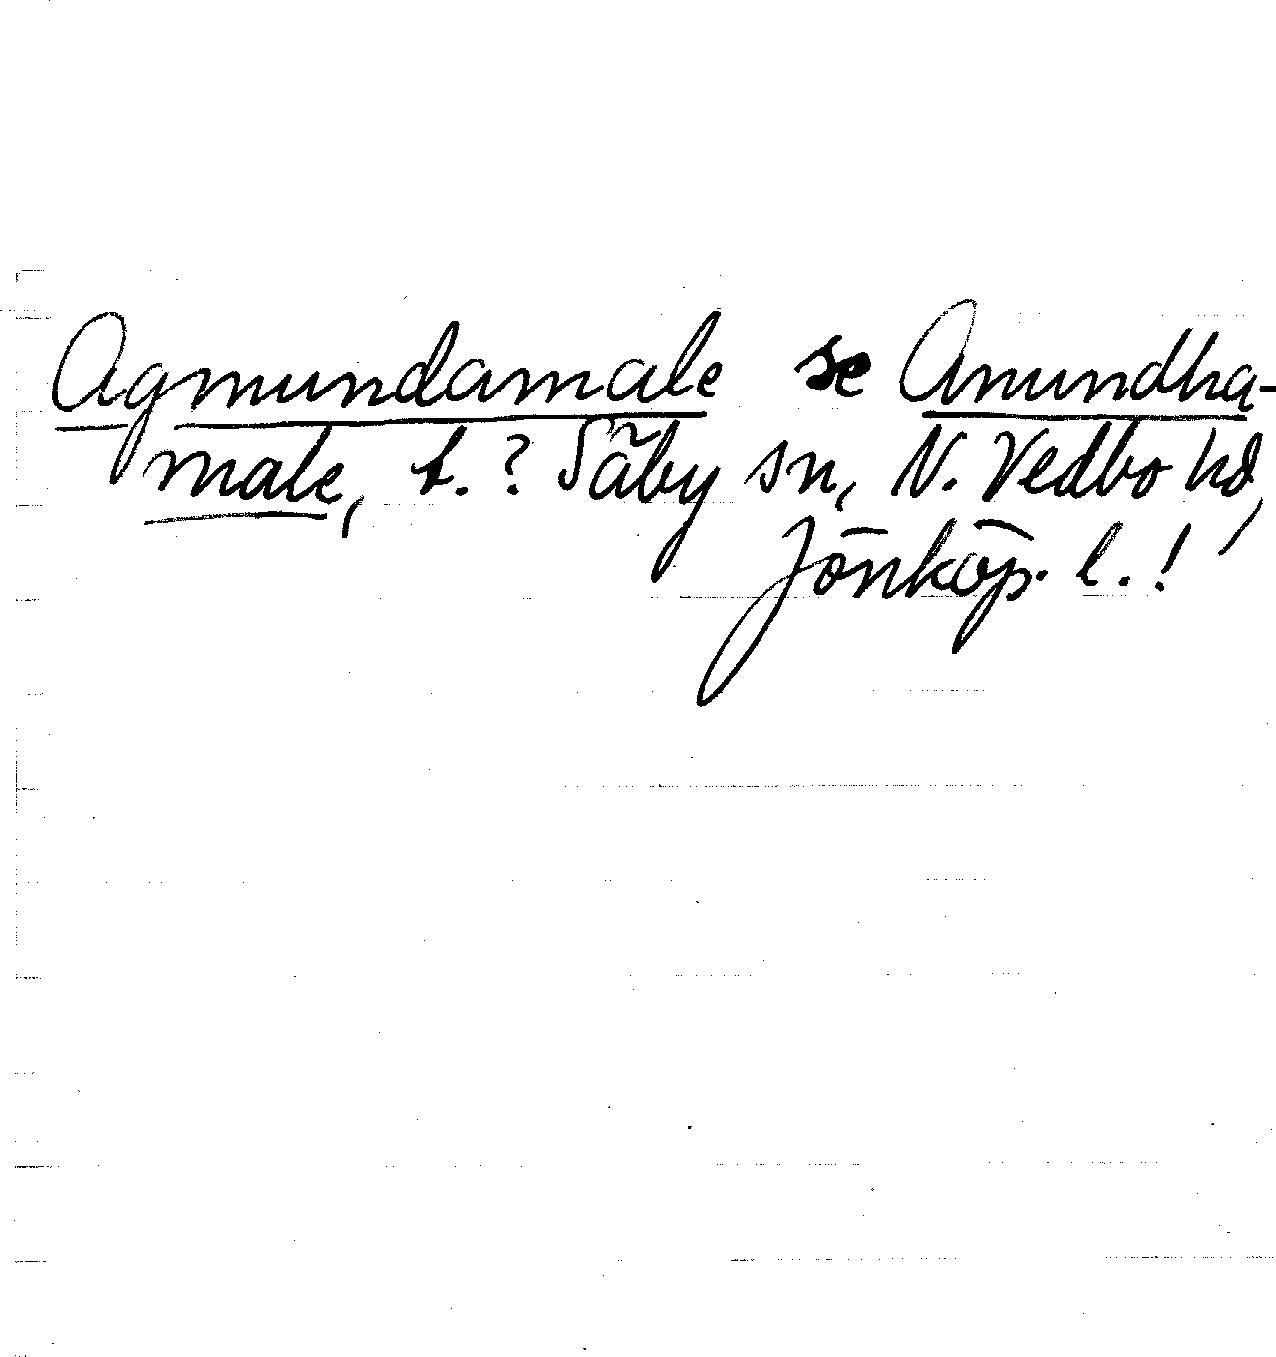 Agmundamale se Anundha-
male, t. ? Säby sn, N. Vedbo hd,
Jönköp. l. !